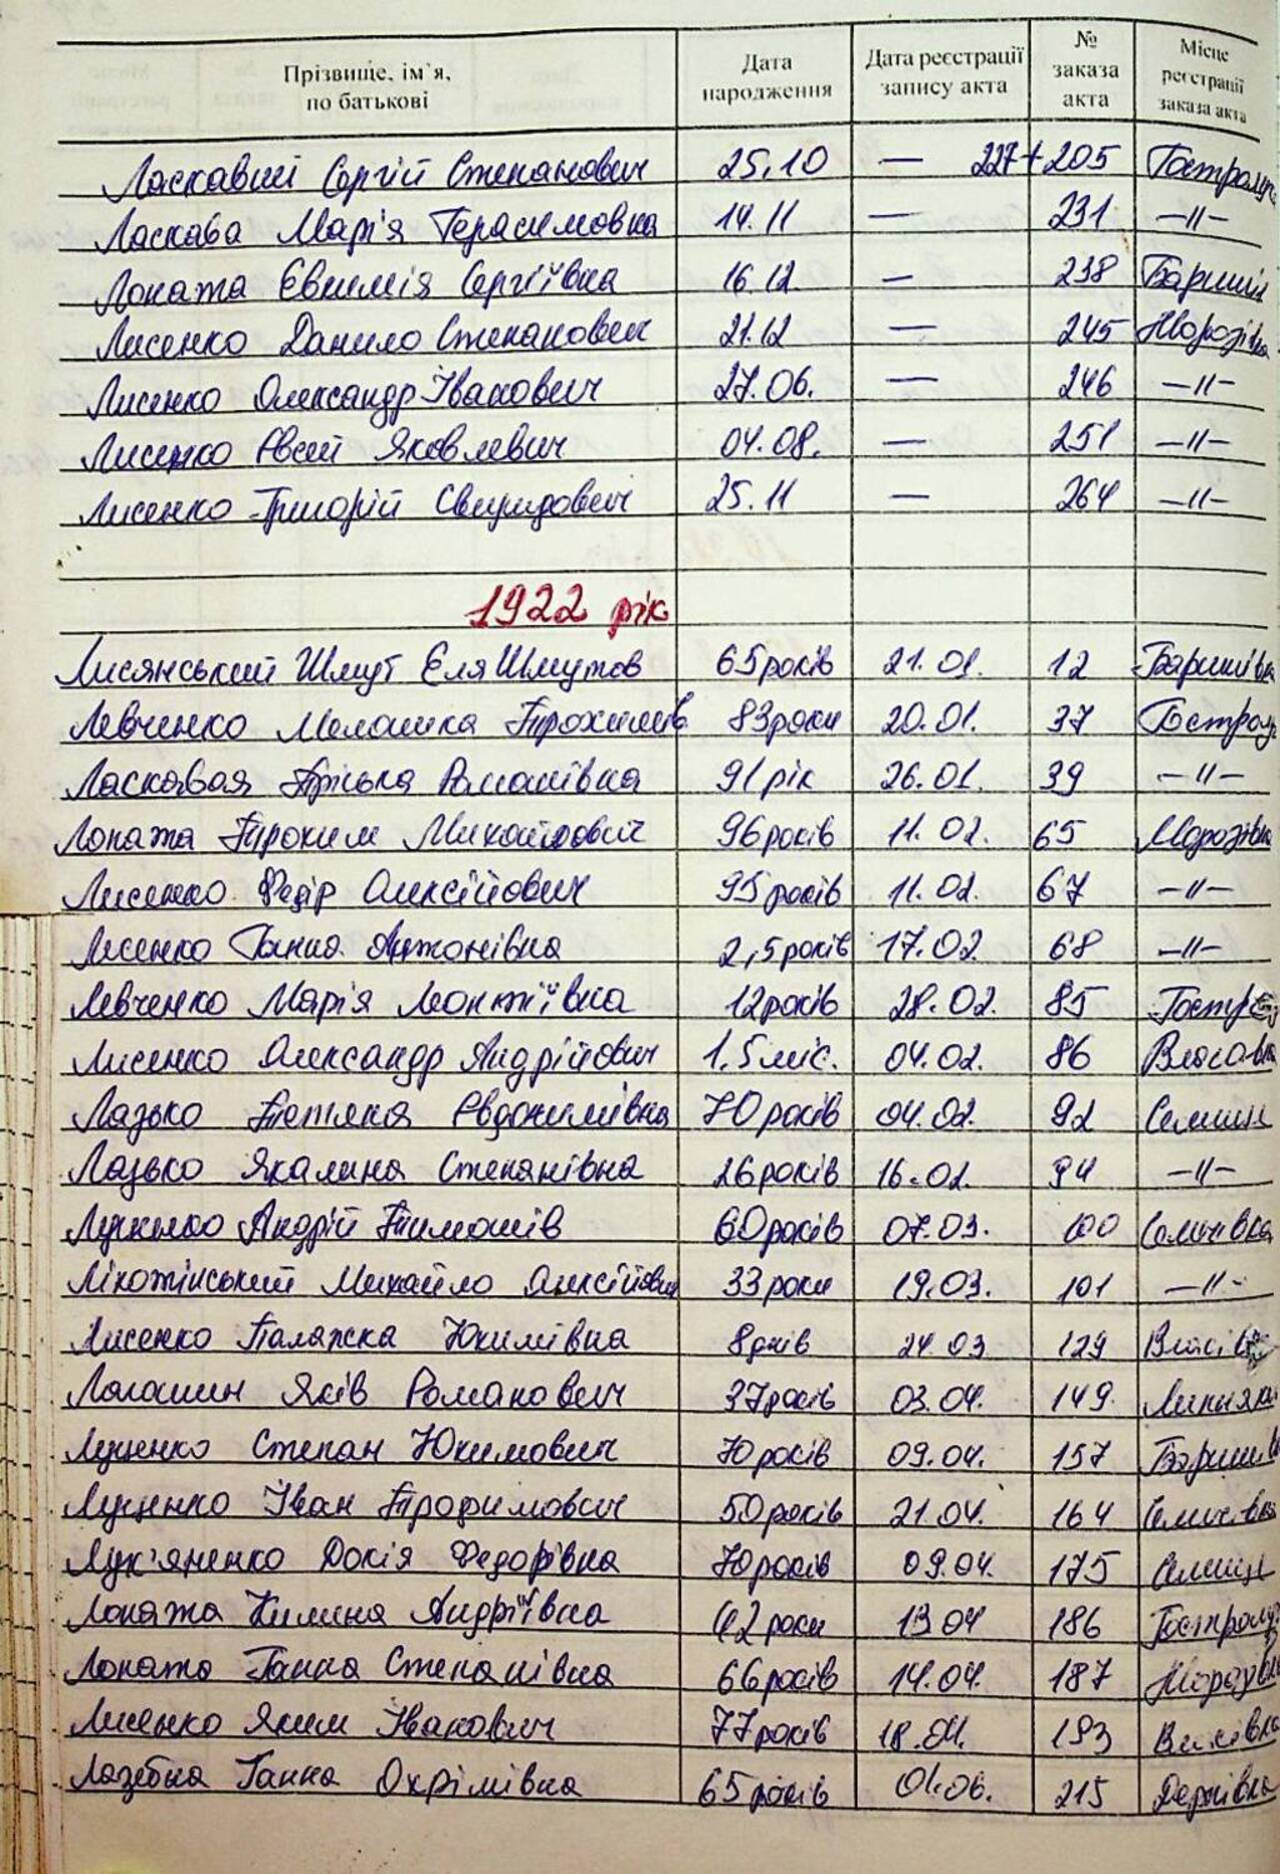 Прізвище, ім`я, по батькові Дата народження Дата реєстрації запису акта № заказа акта Місце реєстрації заказа акта
Ласкавий Сергій Степанович 25.10 — 227+205
Ласкава Марія Герасимовна 14.11 — 231 —"—
Лопата Євгимія Сергіївна 16.12 — 238 Баришів
Лисенко Данило Степанович 21.12 — 245 Морозівка
Лисенко Олександр Іванович 27.06. — 246 —"—
Лисенко Явсей Яковлевич 04.08. — 251 —"—
Лисенко Григорій Свиридович 25.11 — 264 —"—
1922 рік
Лисянський Шмут Еля Шмутов 65 років 21.01. 12 Баришівка
Левченко Мелашка Трохимів 83 роки 20.01. 37 Гострол
Ласкавая Пріська Романівна 91 рік 26.01. 39 —"—
Лопата Трохим Михайлович 96 років 11.02. 65 Морозівка
Лисенко Федір Олексійович 95 років 11.02. 67 —"—
Лисенко Ганна Антонівна 2,5 років 17.02. 68 —"—
Левченко Марія Леонтіївна 12 років 28.02. 85
Лисенко Олександр Андрійович 1.5 міс. 04.02. 86
Лазько Тетяна Євдокимівна 70 років 04.02. 92
Лазько Якалина Степанівна 26 років 16.02. 94 —"—
Луценко Андрій Тимошів 60 років 07.03. 100 Селичівка
Лікотінський Михайло Олексійович 33 роки 19.03. 101 —"—
Лисенко Палажка Юхимівна 8 днів 24.03 129
Логошин Яків Романович 37 років 03.04. 149.
Луценко Степан Юхимович 70 років 09.04. 157 Баришів
Луценко Іван Трофимович 50 років 21.04. 164 Селичівка
Лук'яненко Докія Федорівна 70 років 09.04. 175
Лопата Килина Андріївна 42 роки 13.04 186 Гостролу
Лопата Ганна Степанівна 66 років 14.04. 187
Лисенко Яким Іванович 77 років 18.04. 193
Лазебна Ганна Охрімівна 65 років 01.06. 215 Дернівка